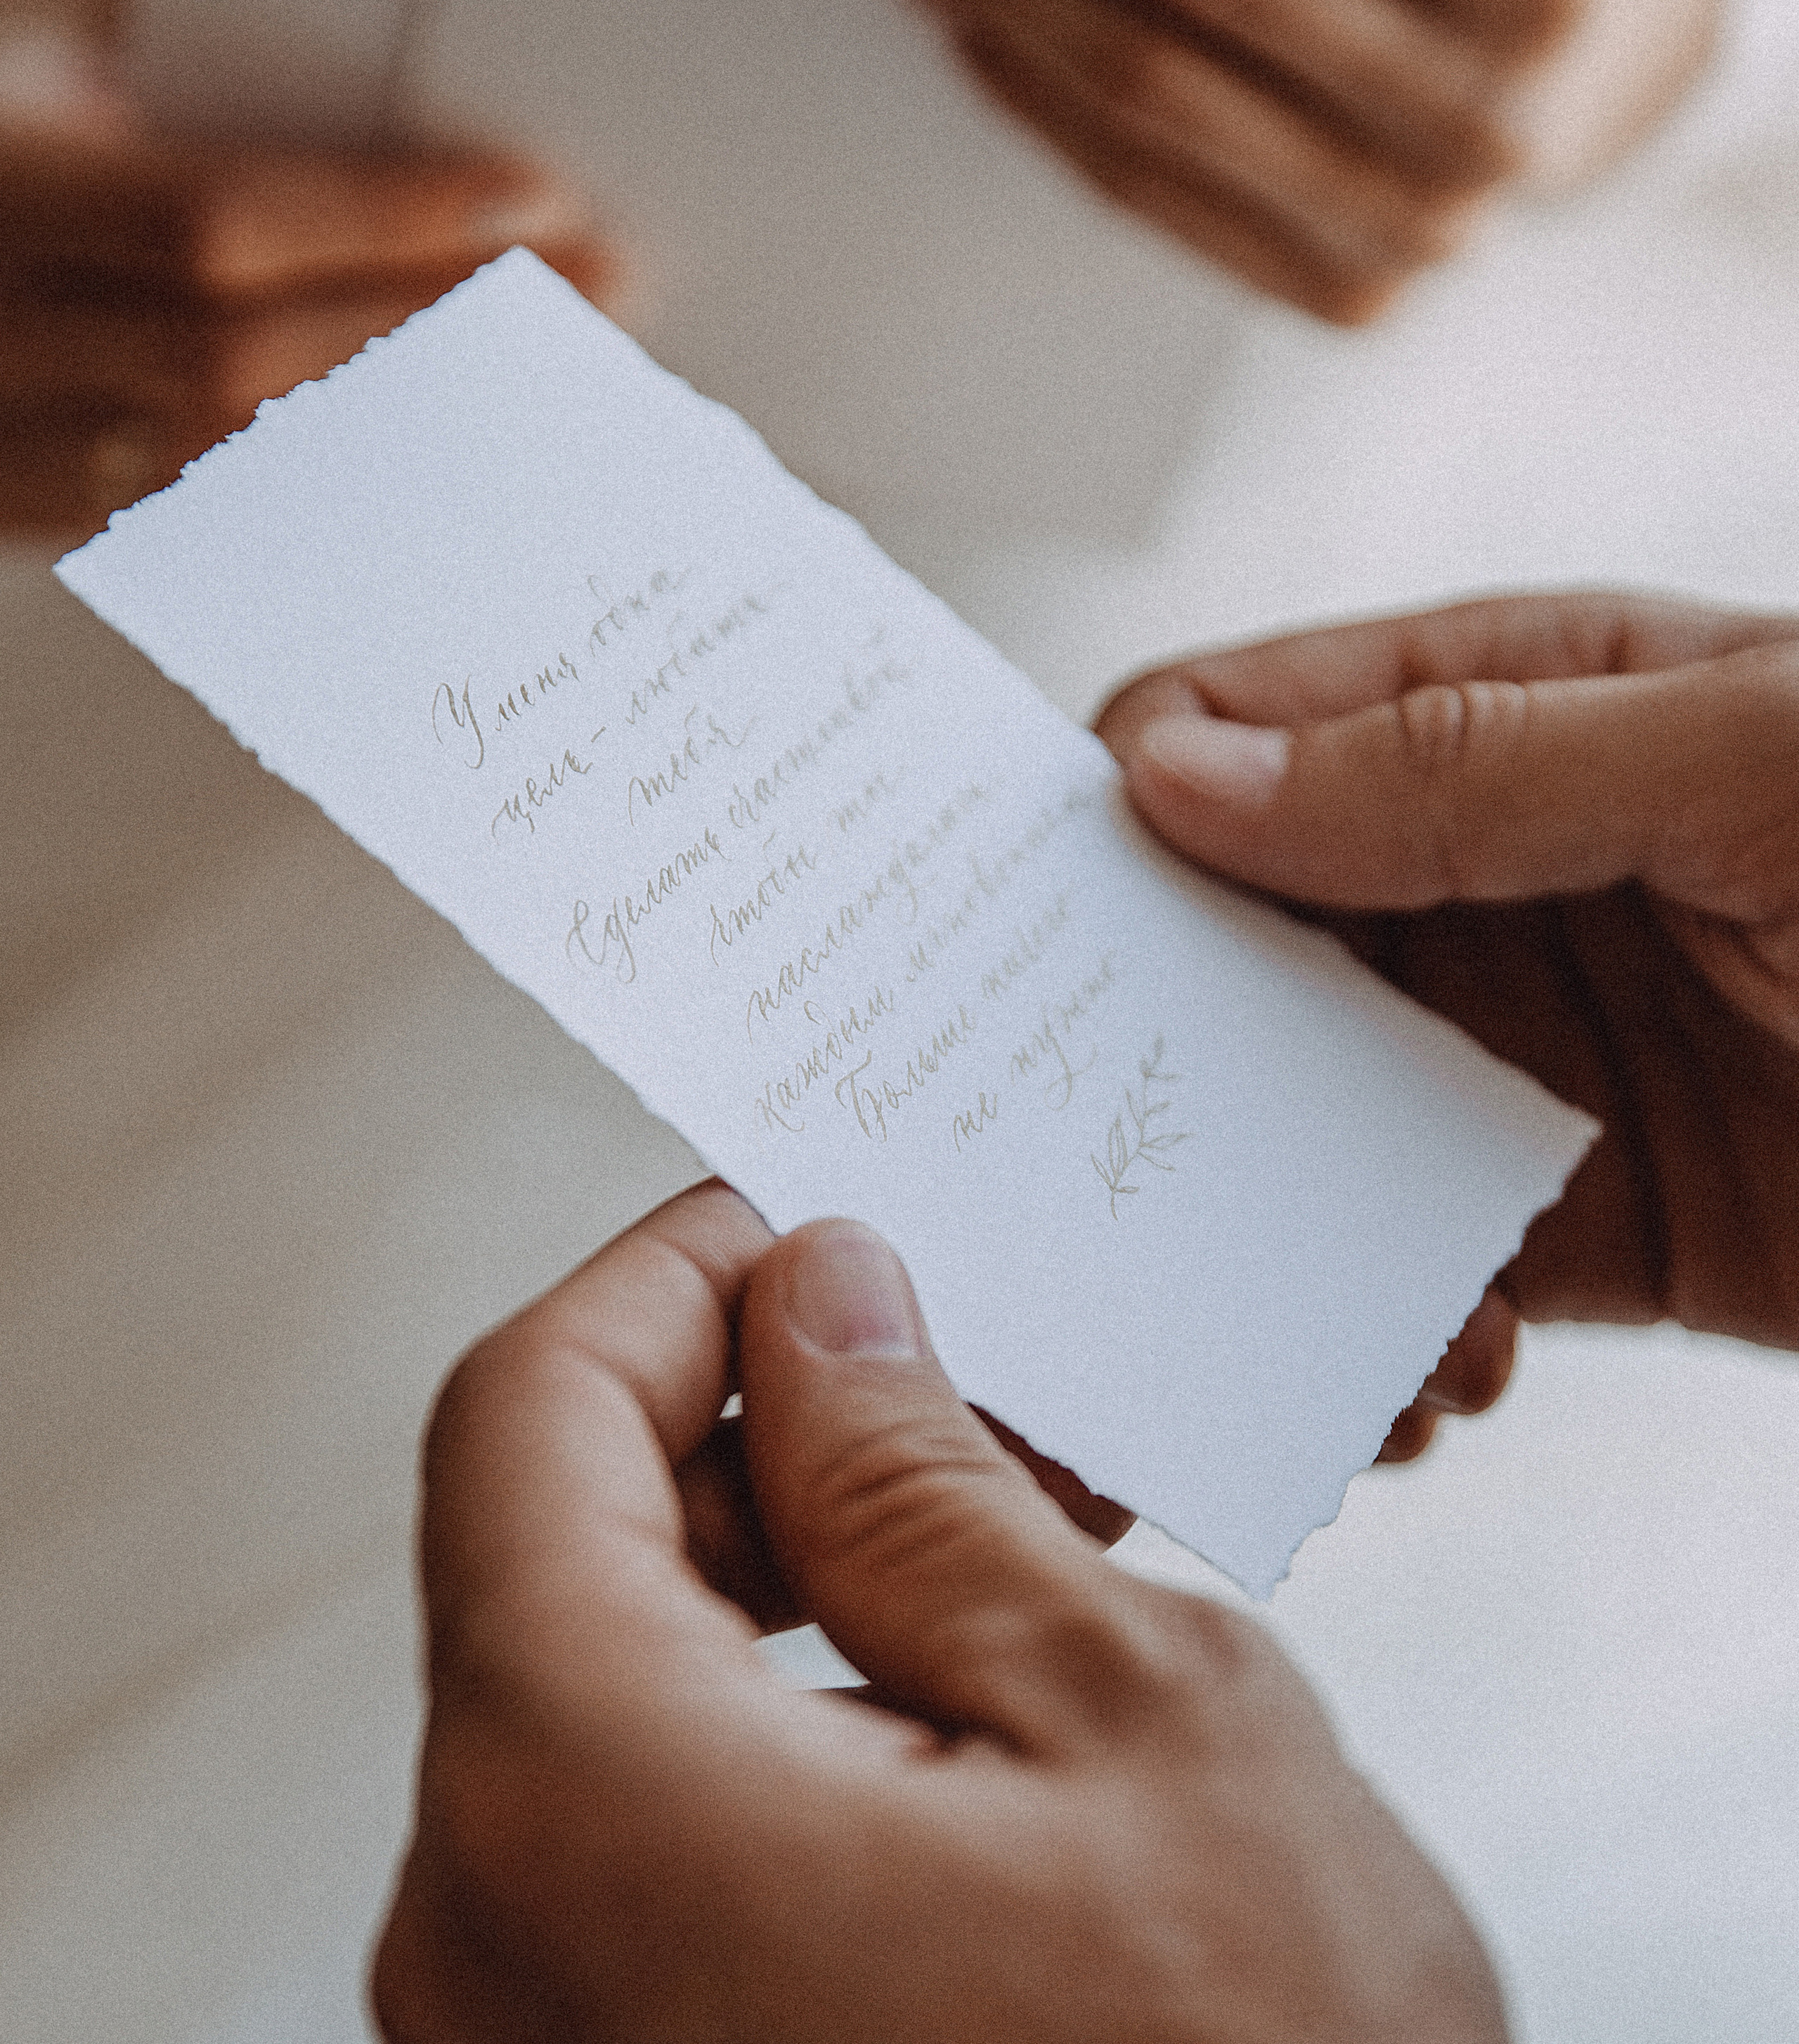 У меня одна
цель - любить
тебя
Сделать счастливой
чтобы ты
наслаждалась
каждым мгновением
Больше ничего
не нужно